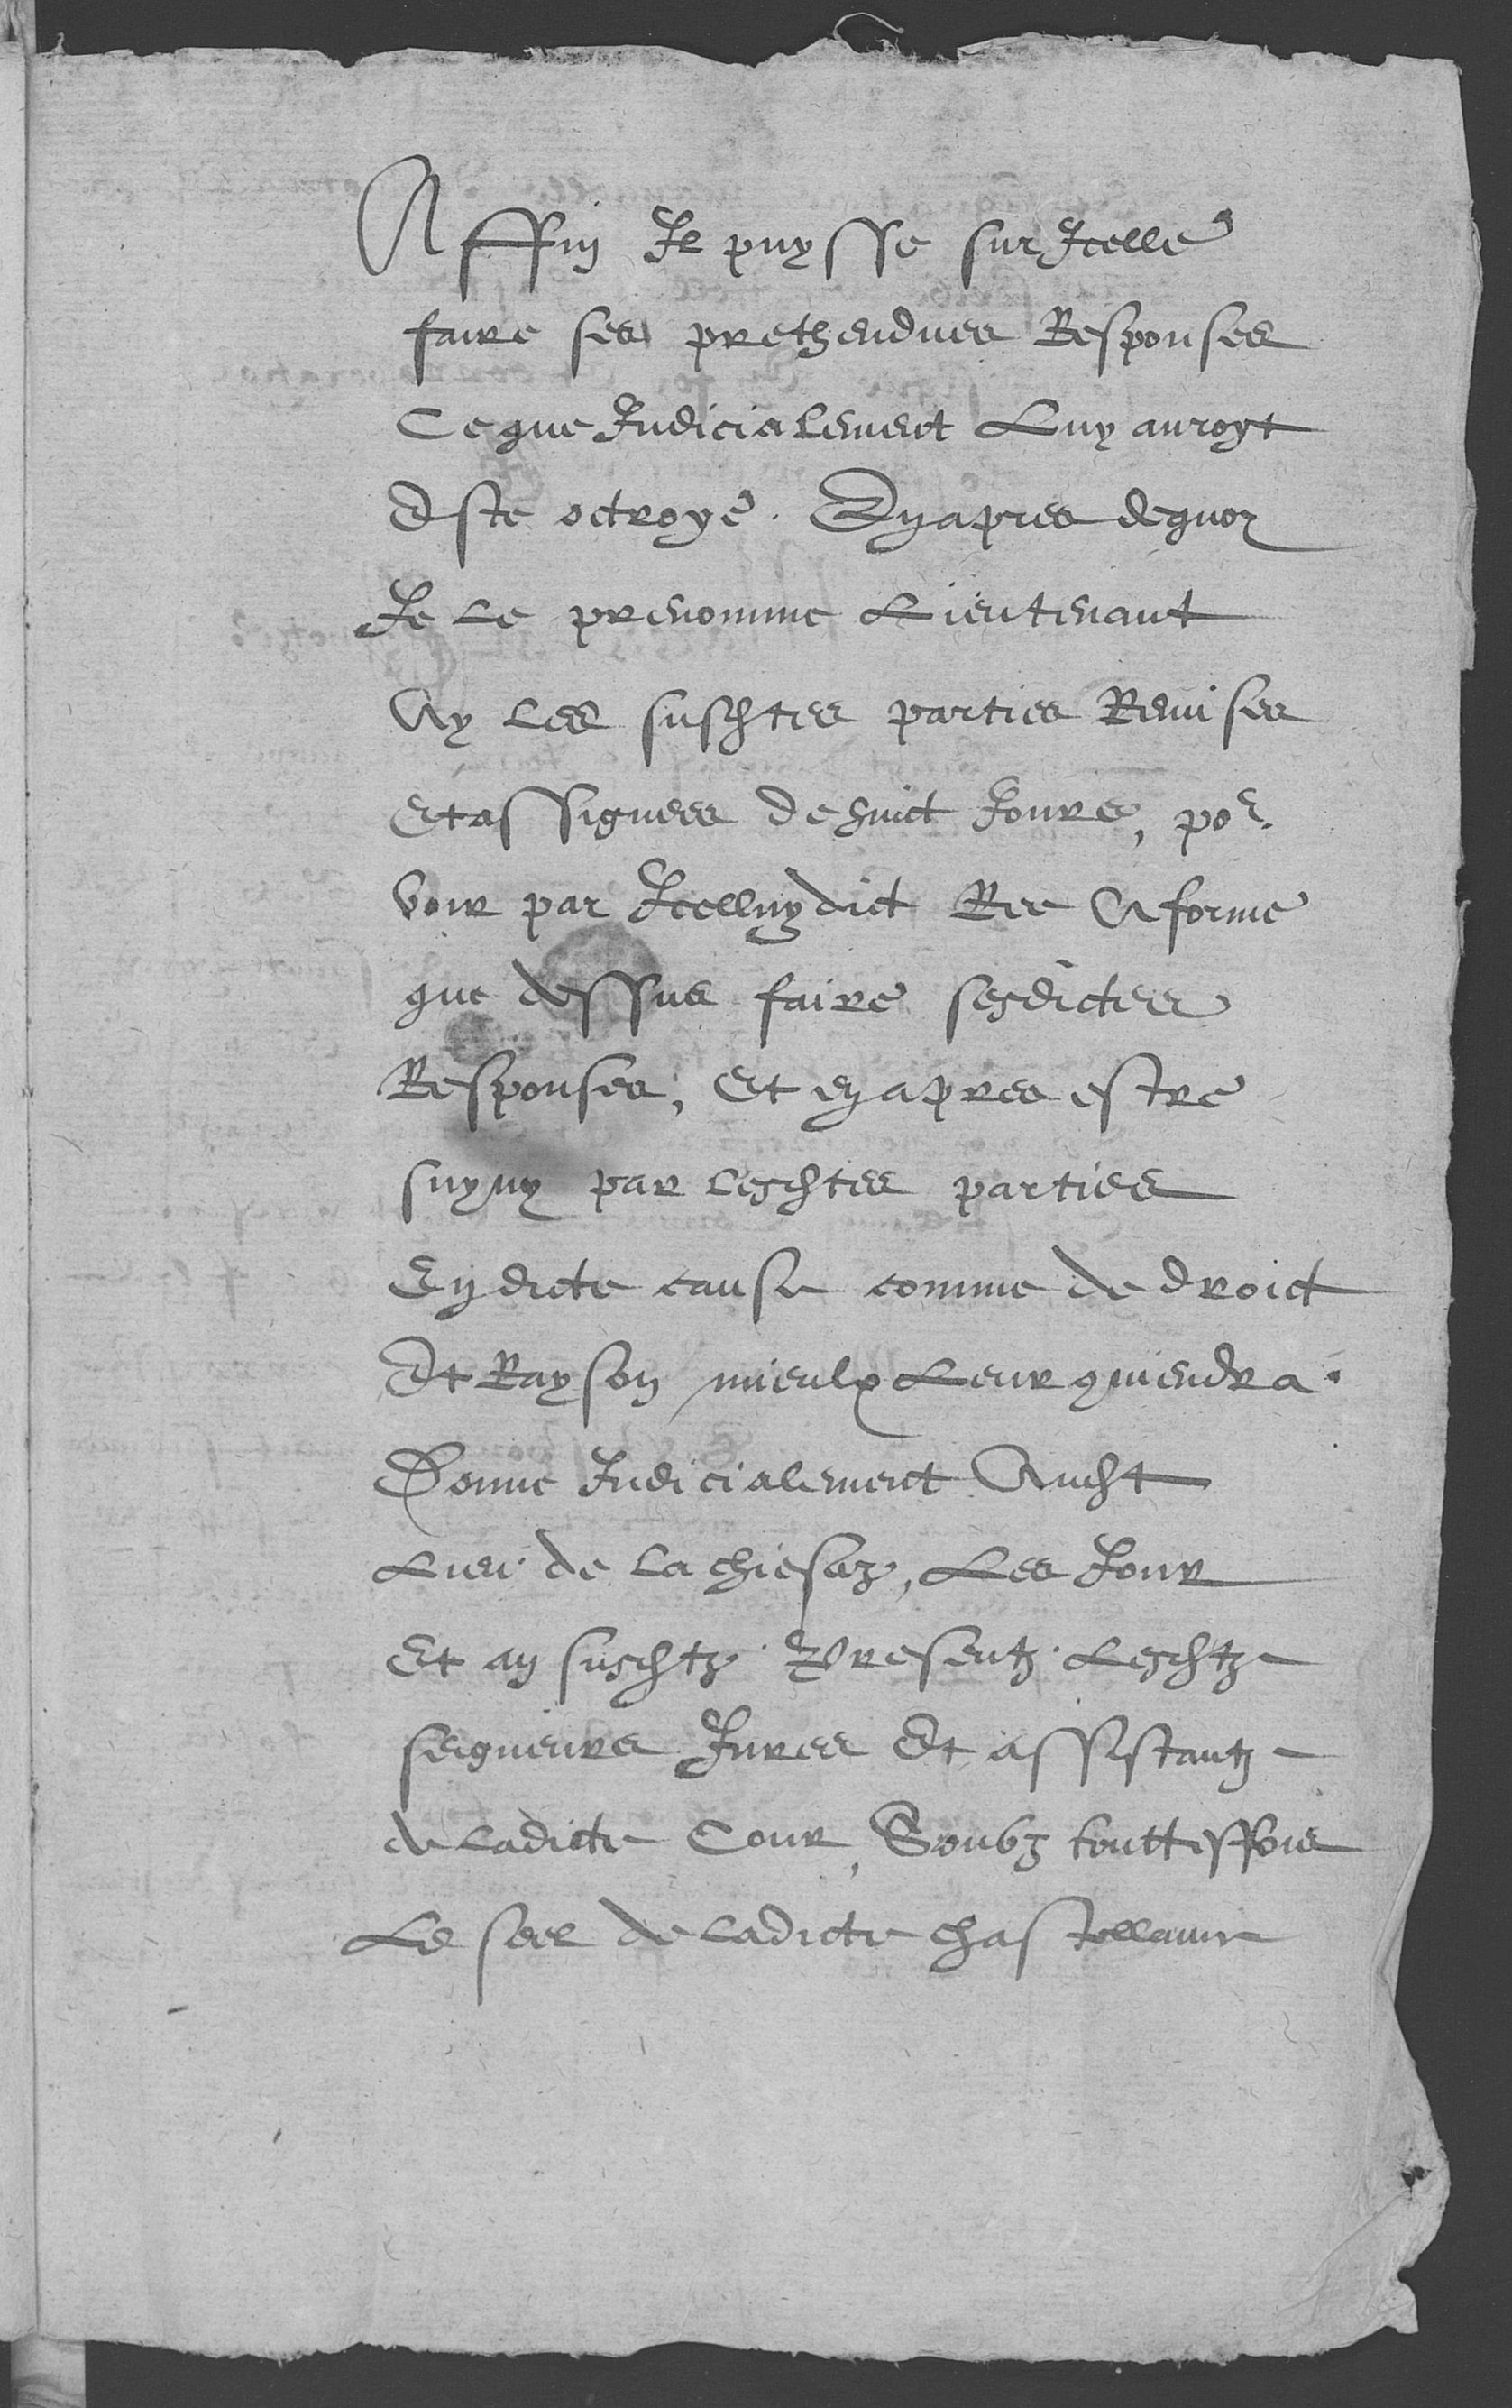 Affin Il puysse sur Icelle
faire ses prethendues Responses
Ce que Iudicialement Luy auroyt
Este octroye. En apres de quoy
Ie Le prenomme Lieutenant
Ay Les suschtes parties Remises
Et assignees de huict Iours, por
Voir par Icelluy dict Ree A forme
que dessus faire sesdictes
Responses, Et en apres estre
suyuy par leschtes parties
En dicte cause comme de droict
Et Rayson mieulx Leur quiendra.
Donne Iudicialement Aucht
Lieu de La chiesaz, Les Iour
Et an suschtz Presentz Leschtz
seigneurs Iures Et assistantz
de ladicte Cour, Soubz touttesfois
Le seel de ladicte chastellanie